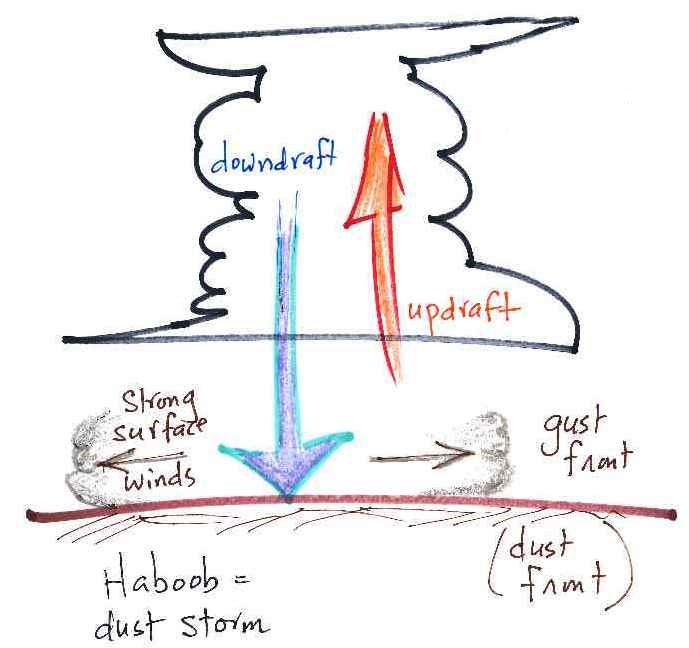 downdraft
updraft
strong
surface
winds
gust
front
(dust
front)
Haboob =
dust storm